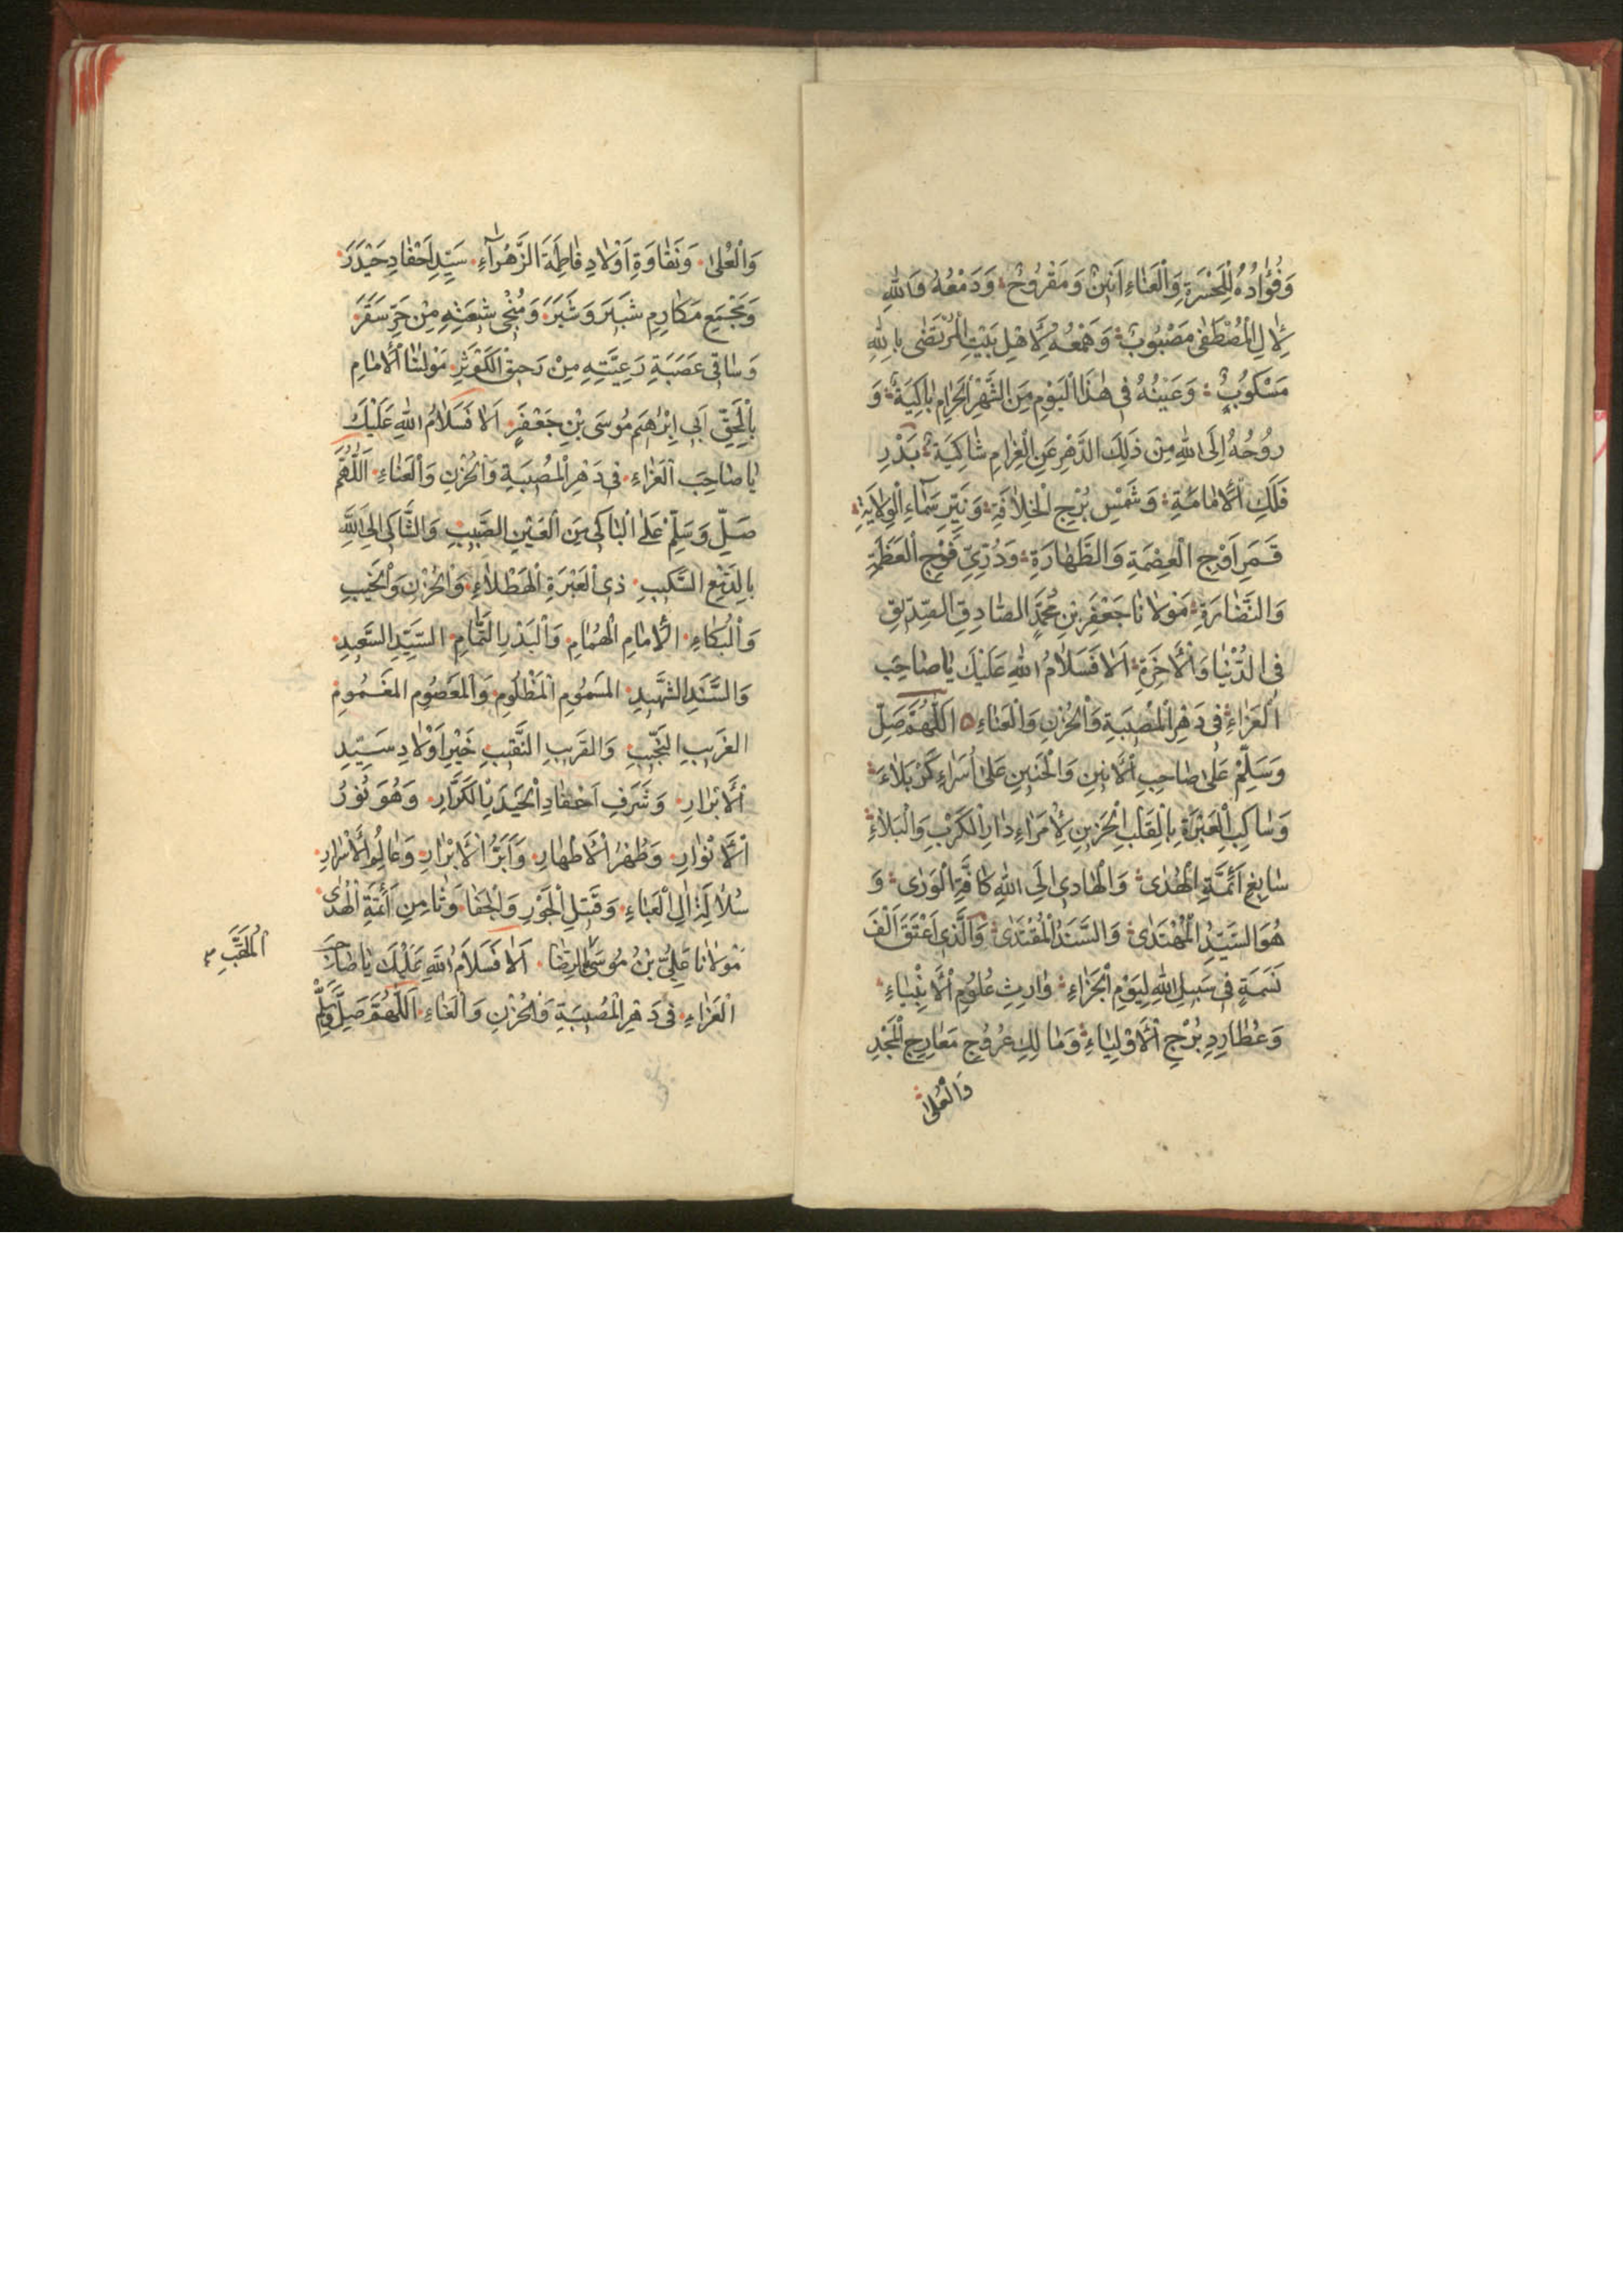 وَفُؤَادُهُ لِلْحَسْرَةِ وَالْعَنَاءِ اَنِينٌ وَمَقْرُوحٌ وَدَمْعُهُ وَاللهِ
لِاٰلِ الْمُصْطَفٰى مَصْبُوبٌ وَهَمْعُهُ لِاَهْلِ بَيْتِ الْمُرْتَضٰى بِاللهِ
مَسْكُوبٌ وَعَيْنُهُ فِى هٰذَا الْيَوْمِ مِنَ الشَّهْرِ الْحَرَامِ بَاكِيَةٌ وَ
رُوْحُهُ اِلَى اللهِ مِنْ ذَلِكَ الدَّهْرِ عَنِ الْغَرَامِ شَاكِيَةٌ بَدْرِ
فَلَكِ الْاِمَامَةِ وَشَمْسِ بُرْجِ الْخِلَافَةِ وَنَيِّرِ سَمَاءِ الْوِلَايَةِ
قَمَرِ اَوْجِ الْعِصْمَةِ وَالطَّهَارَةِ وَدُرِّيِّ فَوْجِ الْعَظَمَةِ
وَالنَّضَارَةِ مَوْلَانَا جَعْفَرِ بْنِ مُحَمَّدٍ الصَّادِقِ الصِّدِّيْقِ
فِى الدُّنْيَا وَالْاٰخِرَةِ اَلَا فَسَلَامُ اللهِ عَلَيْكَ يَا صَاحِبَ
الْعَزَاءِ فِى دَهْرِ الْمُصِيبَةِ وَالْحُزْنِ وَالْعَنَاءِ اَللّٰهُمَّ صَلِّ
وَسَلِّمْ عَلٰى صَاحِبِ الْاَنِينِ وَالْحَنِينِ عَلٰى اُسَرَاءِ كَرْبَلَاءَ
وَسَاكِبِ الْعَبْرَةِ بِالْقَلْبِ الْحَزِينِ لِاُمَرَاءِ دَارِ الْكَرْبِ وَالْبَلَاءِ
سَابِعِ اَئِمَّةِ الْهُدٰى وَالْهَادِى اِلَى اللهِ كَافَّةَ الْوَرٰى وَ
هُوَ السَّيِّدُ الْمُهْتَدٰى وَالسَّنَدُ الْمُقْتَدٰى وَالَّذِى اَعْتَقَ اَلْفَ
نَسَمَةٍ فِى سَبِيلِ اللهِ لِيَوْمِ الْجَزَاءِ وَارِثِ عُلُوْمِ الْاَنْبِيَاءِ
وَعُطَارِدِ بُرْجِ الْاَوْلِيَاءِ وَمَالِكِ عُرُوْجِ مَعَارِجِ الْمَجْدِ
وَالْعُلٰى
وَالْعُلٰى وَنَقَاوَةِ اَوْلَادِ فَاطِمَةَ الزَّهْرَاءِ سَيِّدِ اَحْفَادِ حَيْدَرَ
وَمَجْمَعِ مَكَارِمِ شَبِيرَ وَشَبَرَ وَمُنْجِى شِيعَتِهِ مِنْ حَرِّ سَقَرَ
وَسَاقِى عَصَبَةِ رَعِيَّتِهِ مِنْ رَحِيقِ الْكَوْثَرِ مَوْلَانَا الْاِمَامِ
بِالْحَقِّ اَبِى اِبْرٰهِيمَ مُوسَى بْنِ جَعْفَرٍ اَلَا فَسَلَامُ اللهِ عَلَيْكَ
يَا صَاحِبَ الْعَزَاءِ فِى دَهْرِ الْمُصِيبَةِ وَالْحُزْنِ وَالْعَنَاءِ اَللّٰهُمَّ
صَلِّ وَسَلِّمْ عَلَى الْبَاكِى مِنَ الْعَيْنِ الصَّبِيبِ وَالشَّاكِى اِلَى اللهِ
بِالدَّمْعِ السَّكِيبِ ذِى الْعَبْرَةِ الْهَطْلَاءِ وَالْحُزْنِ وَالنَّحِيبِ
وَالْبُكَاءِ الْاِمَامِ الْهُمَامِ وَالْبَدْرِ التَّمَامِ السَّيِّدِ السَّعِيدِ
وَالسَّنَدِ الشَّهِيدِ الْمَسْمُومِ الْمَظْلُومِ وَالْمَعْصُومِ الْمَغْمُومِ
الْغَرِيبِ النَّجِيبِ وَالْقَرِيبِ النَّقِيبِ خَيْرِ اَوْلَادِ سَيِّدِ
الْاَبْرَارِ وَشَرَفِ اَحْفَادِ الْحَيْدَرِ الْكَرَّارِ وَهُوَ نُوْرُ
الْاَنْوَارِ وَطُهْرُ الْاَطْهَارِ وَاَبَرُّ الْاَبْرَارِ وَعَالِمُ الْاَسْرَارِ
سُلَالَةِ اٰلِ الْعَبَاءِ وَقَتِيلِ الْجَوْرِ وَالْجَفَا وَثَامِنِ اَئِمَّةِ الْهُدٰى
مَوْلَانَا عَلِىُّ بْنُ مُوسَى الرِّضَا اَلَا فَسَلَامُ اللهِ عَلَيْكَ يَا صَاحِبَ
الْعَزَاءِ فِى دَهْرِ الْمُصِيبَةِ وَالْحُزْنِ وَالْعَنَاءِ اَللّٰهُمَّ صَلِّ وَسَلِّمْ
اَلْمُلَقَّبِ